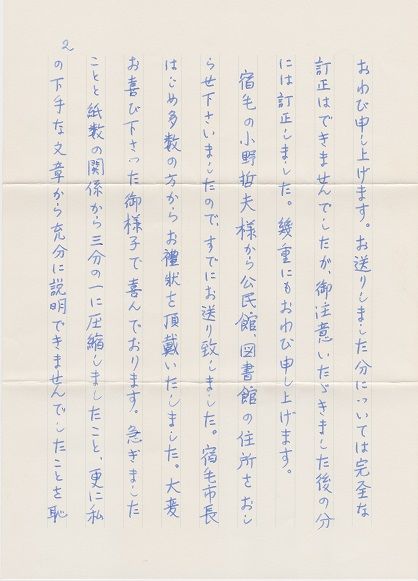 おわび申し上げます。お送りしました分については完全な
訂正はできませんでしたが、御注意いたゞきました後の分
には訂正しました。幾重にもおわび申し上げます。
宿毛の小野哲夫様から公民館、図書館の住所をおし
らせ下さいましたので、すでにお送り致しました。宿毛市長
はじめ多数の方からお禮状を頂戴いたしました。大変
お喜び下さった御様子で喜んでおります。急ぎました
ことと紙数の関係から三分の一に圧縮しましたこと、更に私
の下手な文章から充分に説明できませんでしたことを恥
2